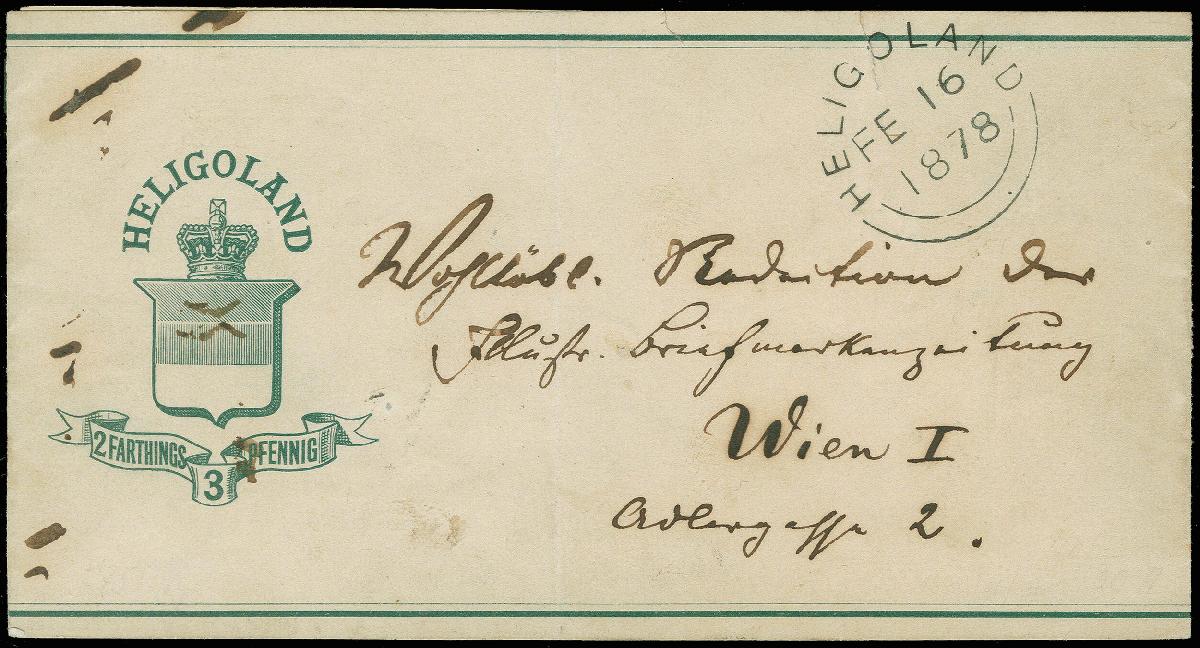 HELIGOLAND
FE 16
1878
HELIGOLAND
2 FARTHINGS 3 PFENNIG
Wohllöbl. Redaction der
Illustr. Briefmarkenzeitung
Wien I
Adlergasse 2.